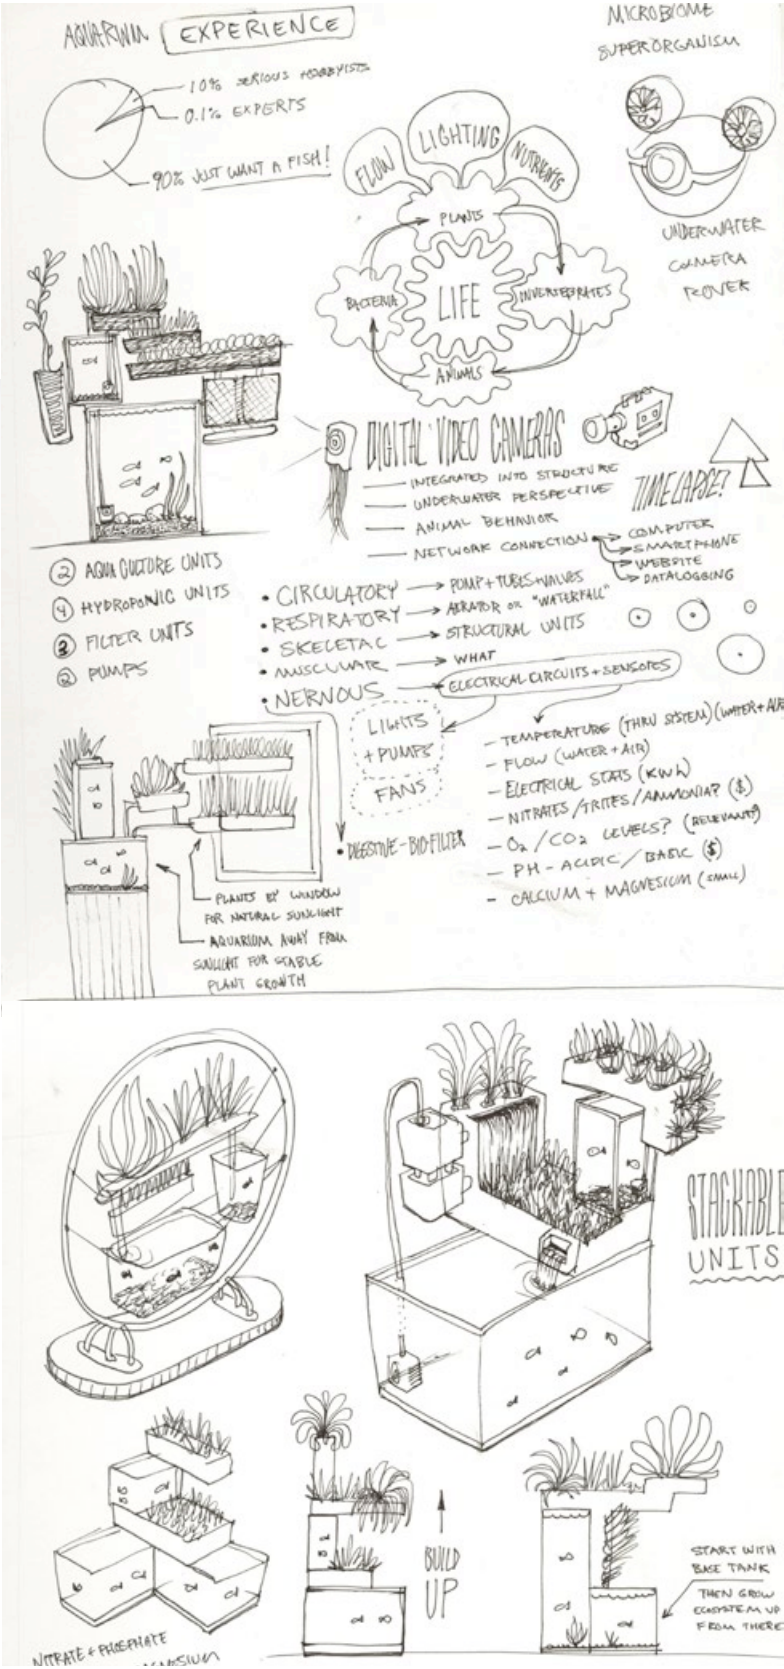 AQUARIUM EXPERIENCE
10% SERIOUS HOBBYISTS
0.1% EXPERTS
90% JUST WANT A FISH!
MICROBIOME
SUPERORGANISM
FLOW
LIGHTING
NUTRIENTS
PLANTS
BACTERIA
LIFE
INVERTEBRATES
ANIMALS
UNDERWATER
CAMERA
ROVER
DIGITAL VIDEO CAMERAS
INTEGRATED INTO STRUCTURE
UNDERWATER PERSPECTIVE
ANIMAL BEHAVIOR
NETWORK CONNECTION
TIME LAPSE?
COMPUTER
SMARTPHONE
WEBSITE
DATALOGGING
2 AQUACULTURE UNITS
4 HYDROPONIC UNITS
3 FILTER UNITS
2 PUMPS
• CIRCULATORY → PUMP + TUBES + VALVES
• RESPIRATORY → AERATOR OR "WATERFALL"
• SKELETAL → STRUCTURAL UNITS
• MUSCULAR → WHAT
• NERVOUS → ELECTRICAL CIRCUITS + SENSORS
LIGHTS
+ PUMPS
FANS
• DIGESTIVE - BIO-FILTER
- TEMPERATURE (THRU SYSTEM) (WATER + AIR
- FLOW (WATER + AIR)
- ELECTRICAL STATS (KWh)
- NITRATES/TRITES/AMMONIA? ($)
- O2 / CO2 LEVELS? (RELEVANT?)
- PH - ACIDIC / BASIC ($)
- CALCIUM + MAGNESIUM (SMALL)
PLANTS BY WINDOW
FOR NATURAL SUNLIGHT
AQUARIUM AWAY FROM
SUNLIGHT FOR STABLE
PLANT GROWTH
STACKABLE
UNITS
BUILD
UP
START WITH
BASE TANK
THEN GROW
ECOSYSTEM UP
FROM THERE
NITRATE + PHOSPHATE